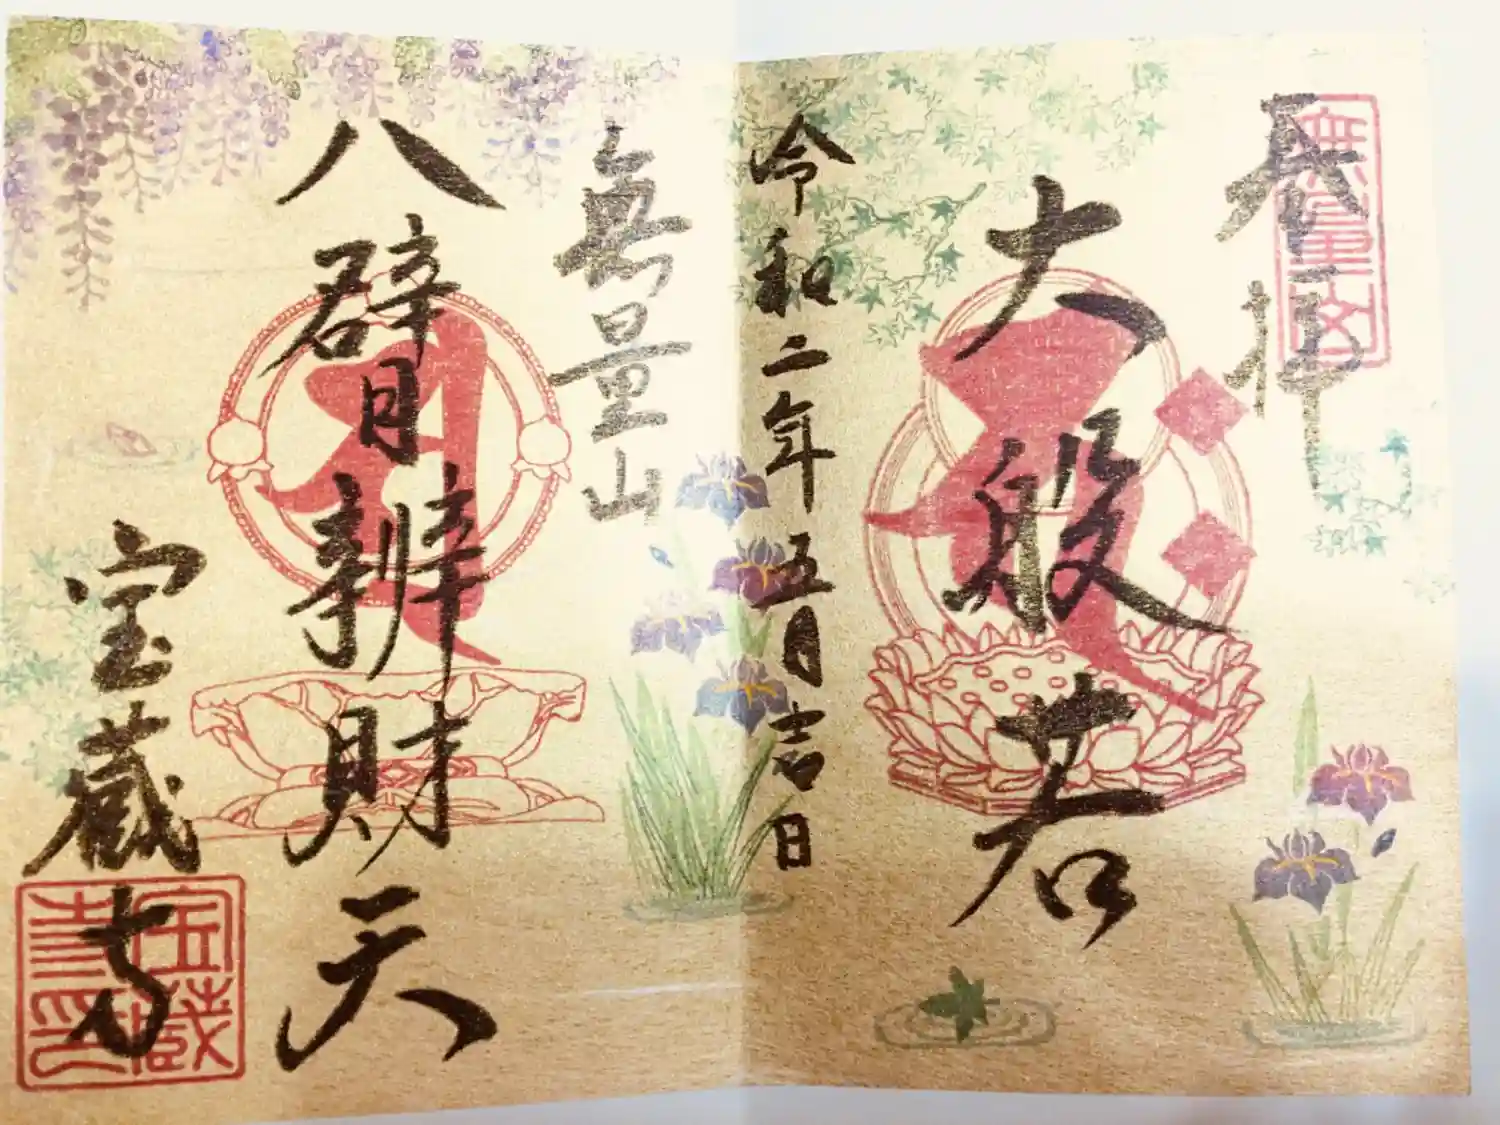 奉拝
無量山
大般若
令和二年五月吉日
無量山
八臂辨財天
宝蔵寺
宝蔵
寺印